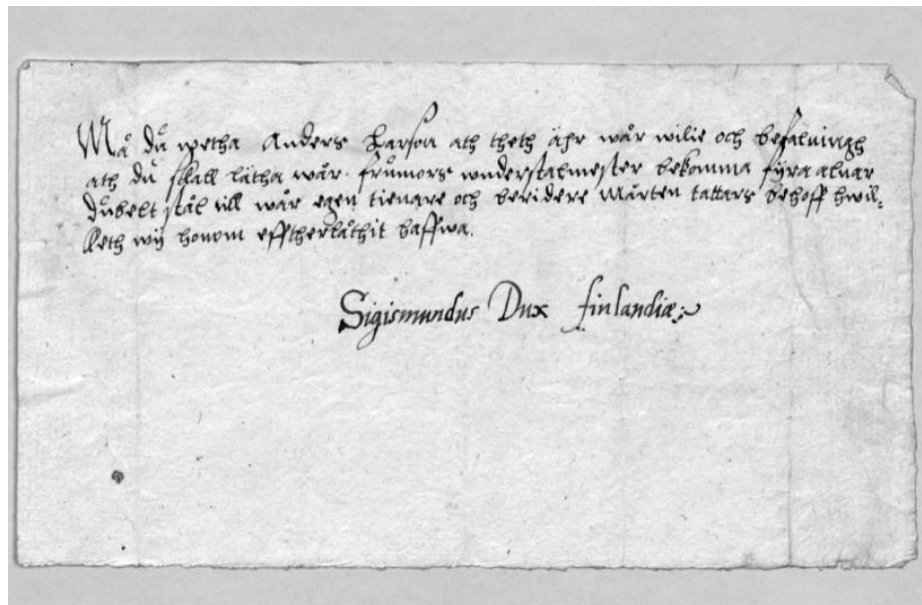 Må dů wetha Anders Larson ath theth ähr wår wilie och befalningh
ath dů skall låtha wår frůmors wnderstalmester bekomma fÿra alnar
důbelt stål till wår egen tienare och beridere Mårten tattars behoff hwil=
keth wÿ honom efftherlåthit haffwa.
Sigismundus Dux finlandiæ